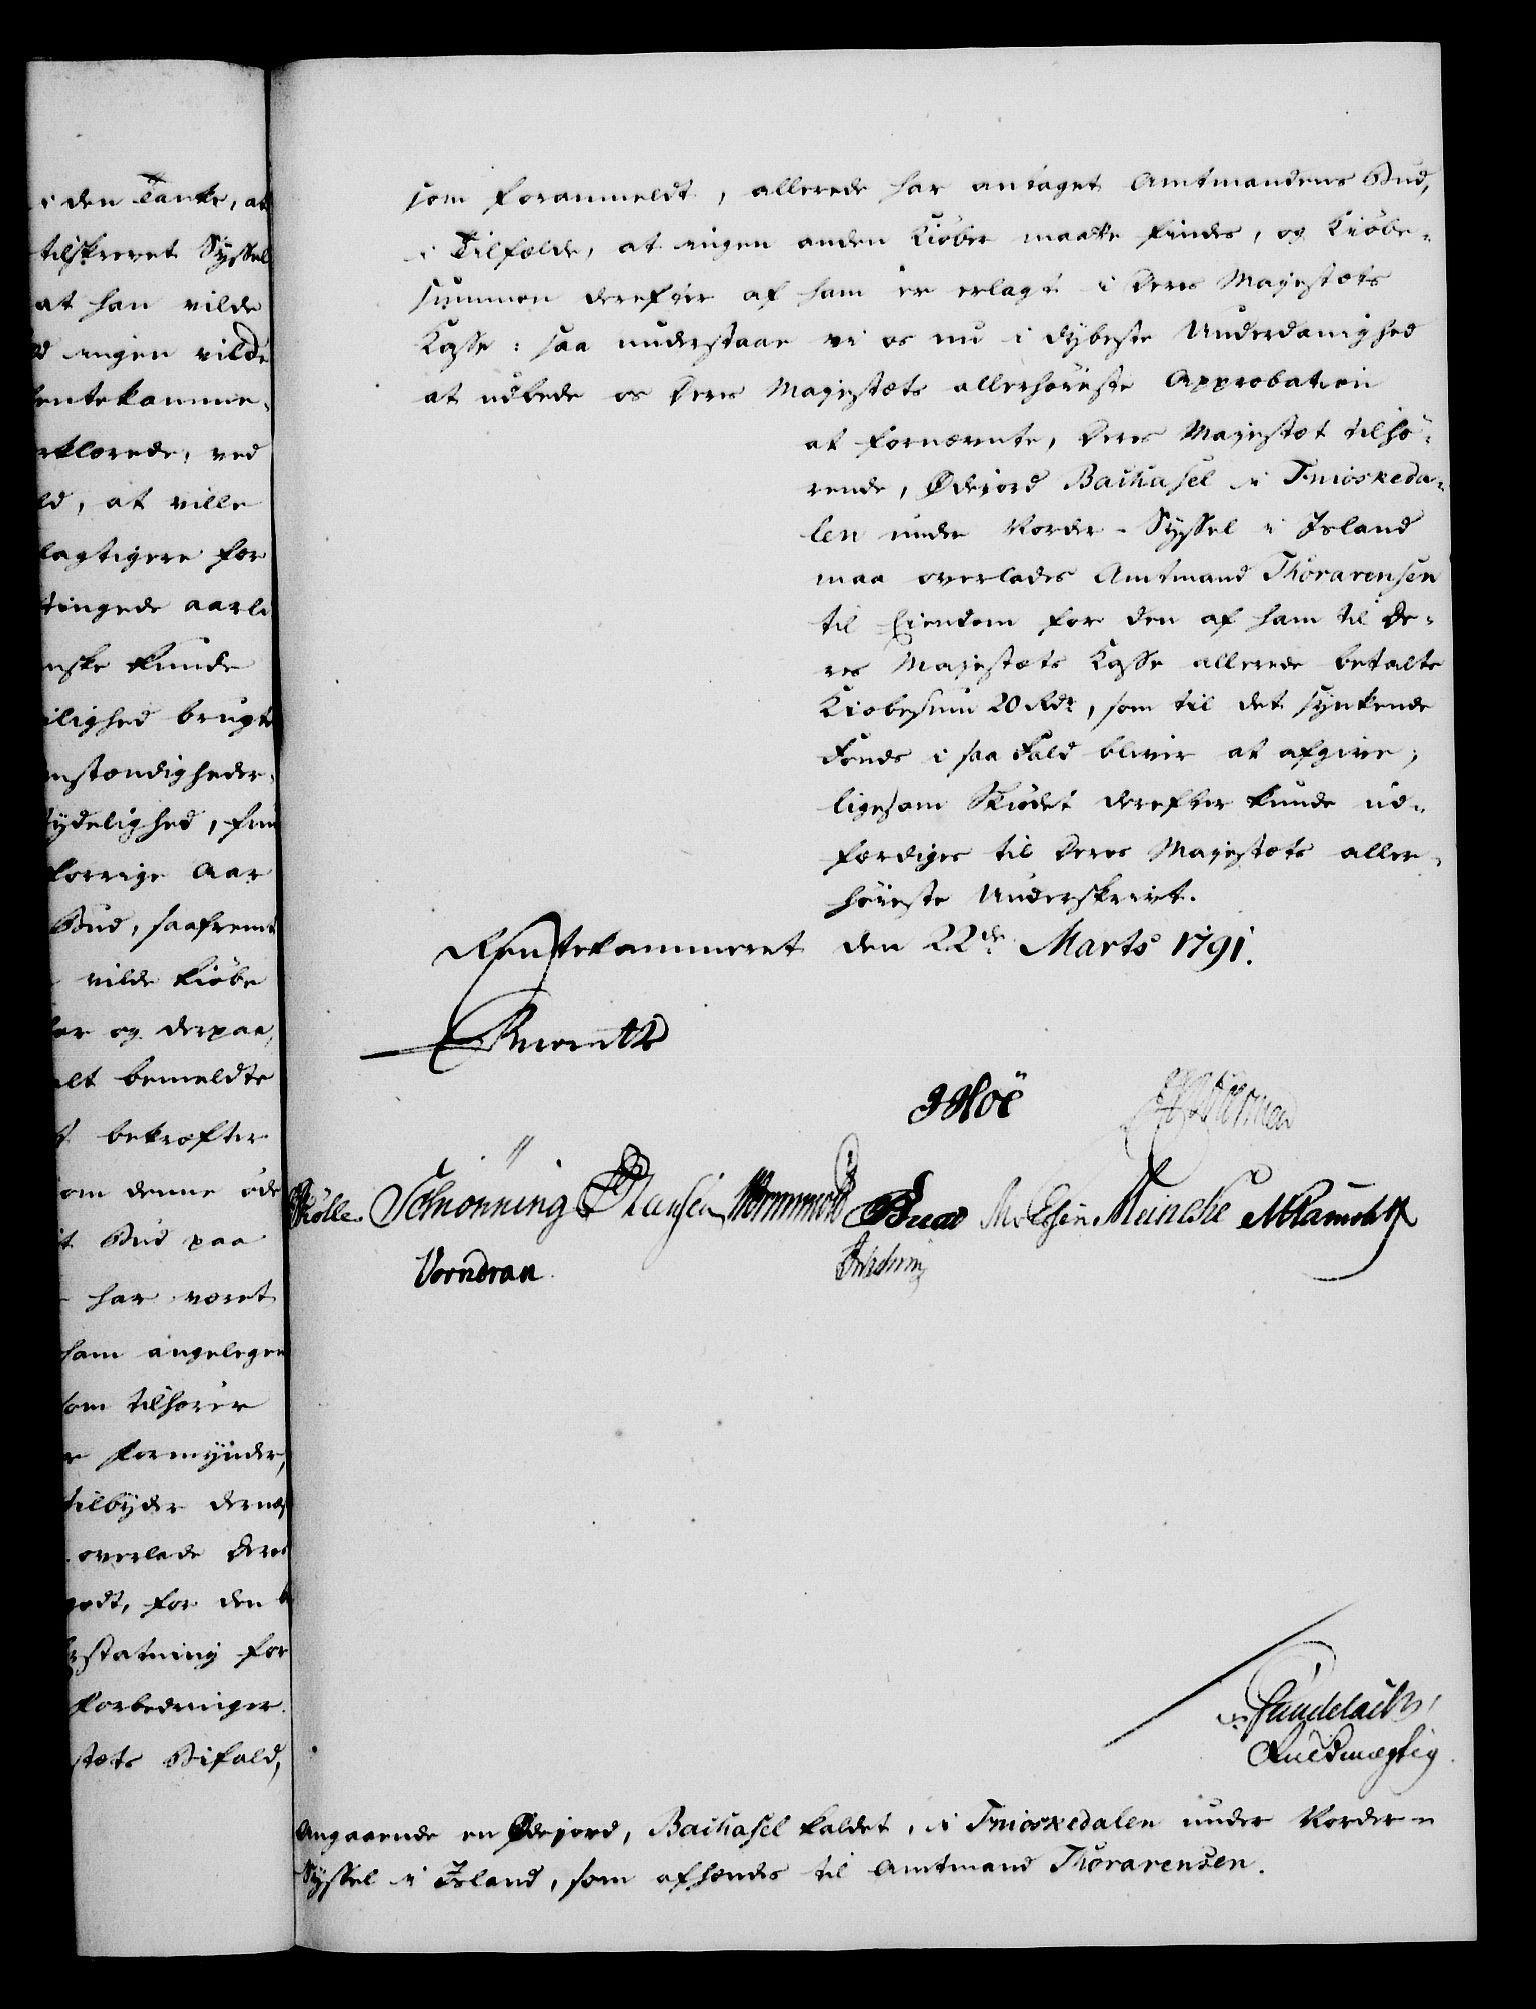 i den Tanke, at
tilskrevet Syssel
at han vilde
ingen vilde
entekamme-
rklærede, ved
ld, at ville
lagtigere for
tingede aarli
nske kunde
ilighed brugte
mstændigheder-
tydelighed, fun
forrige Aar
Bud, saafremt
vilde kiøbe
for og derpaa
alt bemeldte
bekræfter
om denne øde
Bud paa
har været
ham angelegen
som tilhører
formynder,
tilbyder dernæst
overlade Deres
godt, for den
rstatning for
Forbedringer
stæts Bifald,
som foranmeldt, allerede har antaget Amtmandens Bud,
i Tilfælde, at ingen anden Kiøber maatte findes, og Kiøbe-
summen derefter af ham er erlagt i Deres Majestæts
Kasse: saa understaae vi os nu i dybeste Underdanighed
at udbede os Deres Majestæts allerhøieste Approbation
at fornævnte, Deres Majestæt tilhø-
rende, Ødejord Backasel i Fnioskeda-
len under Norder-Syssel i Island
maa overlades Amtmand Thorarensen
til Eiendom for den af ham til De-
res Majestæts Kasse allerede betalte
Kiøbesum 20 Rdr, som til det synkende
Fonds i saa Fald bliver at afgive,
ligesom Skiødet derefter kunde ud-
færdiges til Deres Majestæts aller-
høieste Underskrivt.
Rentekammeret den 22de Marts 1791.
JHoë
Rølle. Schiønning Hansen Wormskiold Meincke
Vorndran.
Angaaende en Ødejord, Backasel kaldet, i Fnioskedalen under Norder-
Syssel i Island, som afhændes til Amtmand Thorarensen.